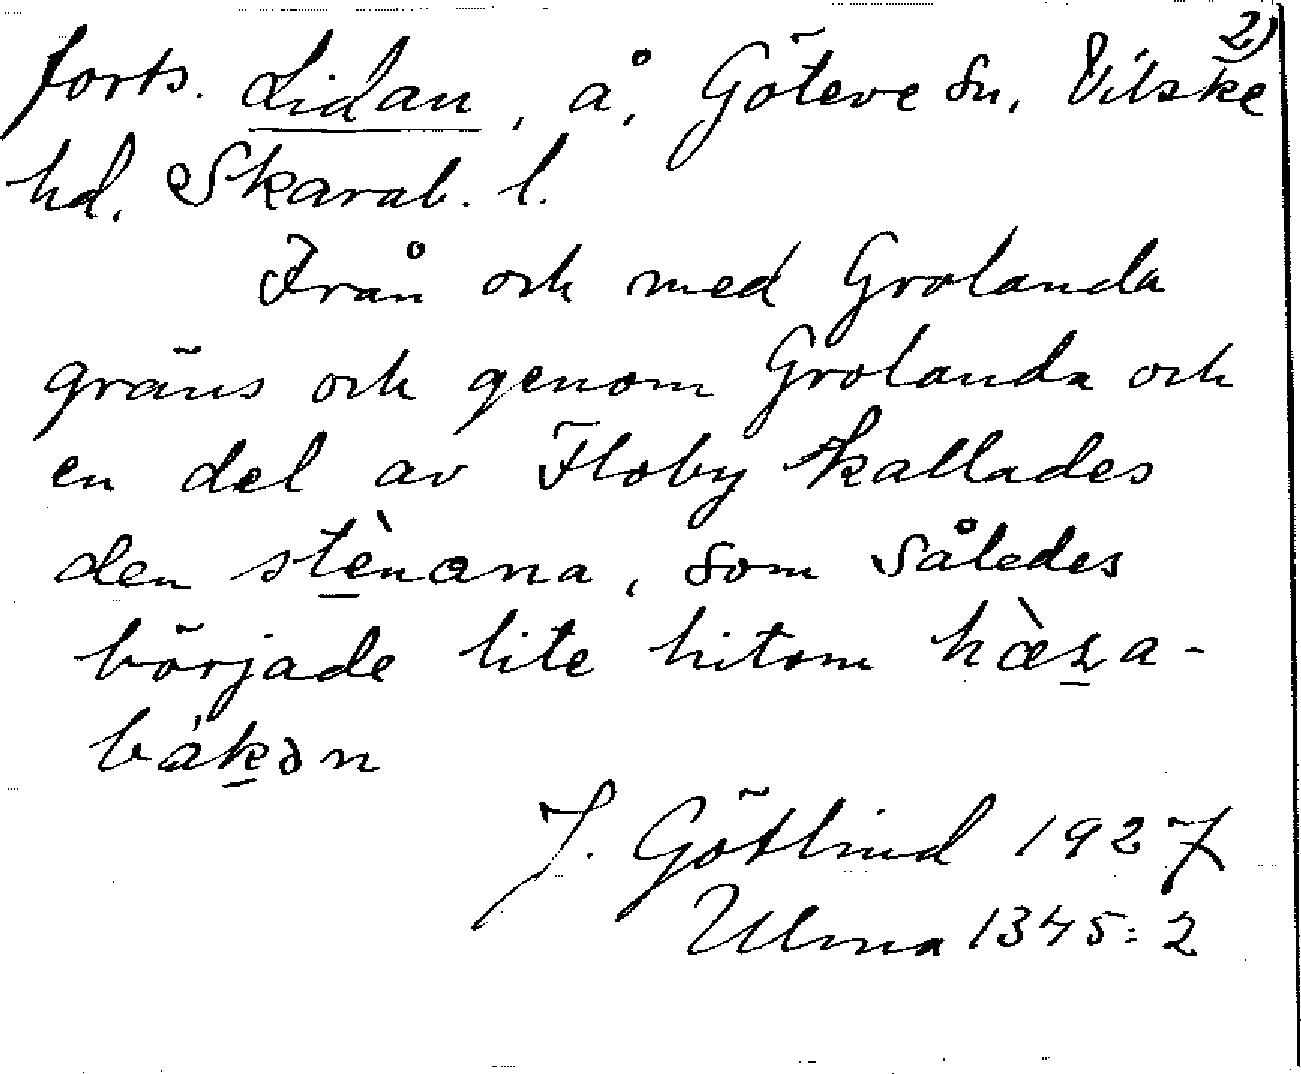 2)
forts. Lidan, å, Göteve sn, Vilske
hd. Skarab. l.
Från och med Grolanda
gräns och genom Grolanda och
en del av Floby kallades
den stènana, som således
började lite hitom
bákən
J. Götlind 1927
Ulma 1345:2